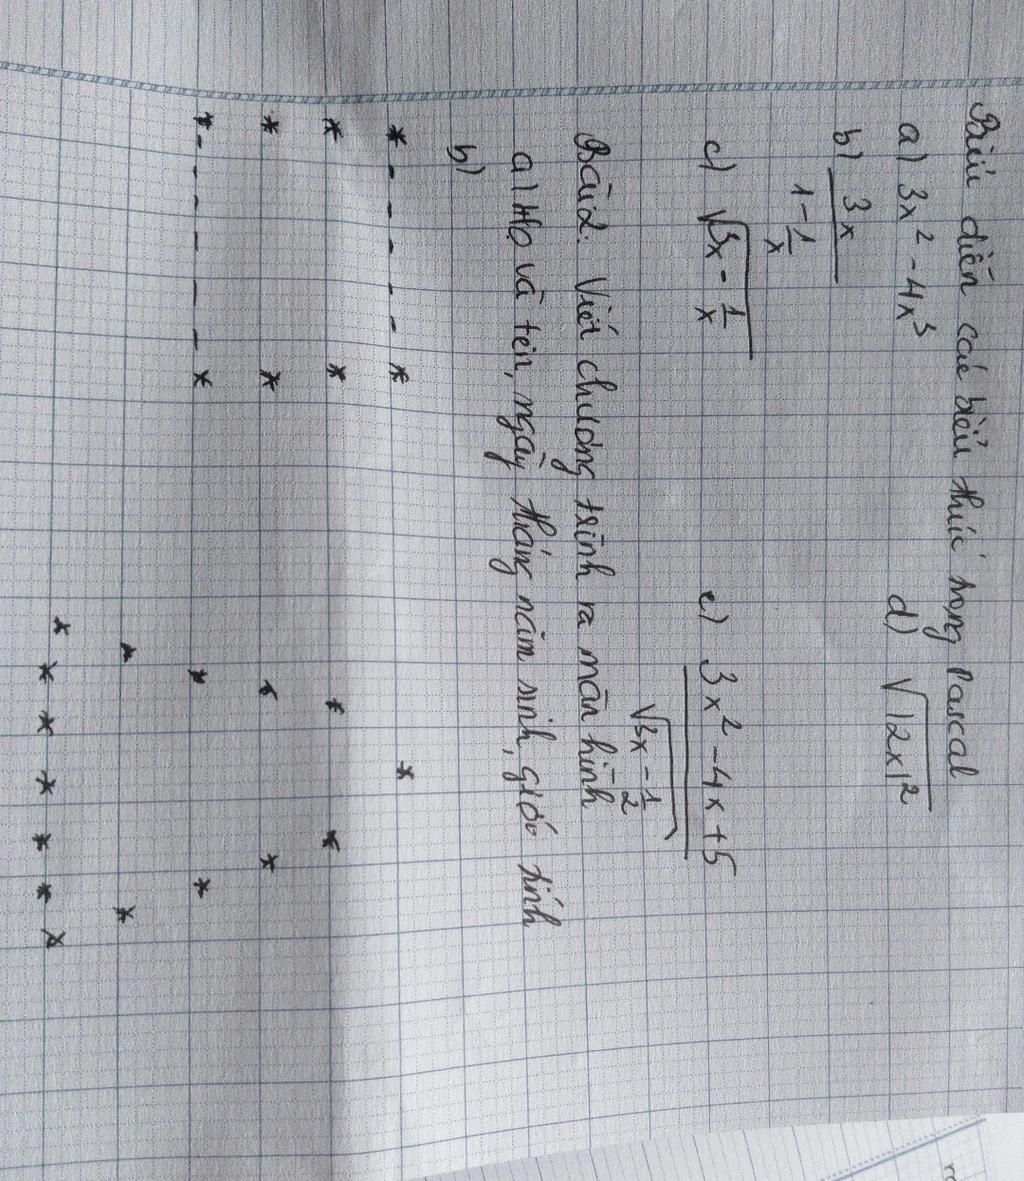 Biểu diễn các biểu thức trong Pascal
a) 3x² - 4x³
d) √12x1²
b) 3x / (1 - 1/x)
c) √(3x - 1/x)
e) (3x² - 4x + 5) / √(3x - 1/2)
Bài 2: Viết chương trình ra màn hình
a) Họ và tên, ngày tháng năm sinh, giới tính
b)
* - - - - * *
* * * *
* * * *
* - - - - - * * *
* *
* * * * * * *